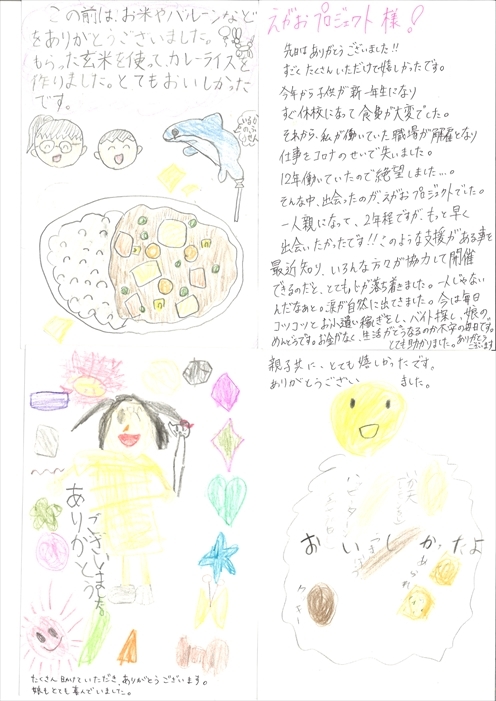 この前は、お米やバルーンなど
をありがとうございました。
もらった玄米を使って、カレーライスを
作りました。とてもおいしかった
です。
いるかの
ふうせん
えがおプロジェクト様!
先日はありがとうございました!!
すごくたくさんいただけて嬉しかったです。
今年から子供が新一年生になり
すぐ休校になって食費が大変でした。
それから、私が働いていた職場が解雇となり
仕事をコロナのせいで失いました。
12年働いていたので絶望しました…。
そんな中、出会ったのが、えがおプロジェクトでした。
一人親になって、2年程ですが、もっと早く
出会いたかったです!!このような支援がある事を
最近知り、いろんな方々が協力して開催
できるのだと、とても心が落ち着きました。一人じゃない
んだなぁと。涙が自然に出てきました。今は毎日
コツコツとお小遣い稼ぎをし、バイト探し、娘の
めんどうです。お金がなく、生活がどうなるのか不安の毎日です。
とても助かりました。ありがとう
ございます
ありがとう
ございました
たくさん助けていただき、ありがとうございます。
娘もとても喜んでいました。
親子共に、とても嬉しかったです。
ありがとうござい ました。
おいしかったよ